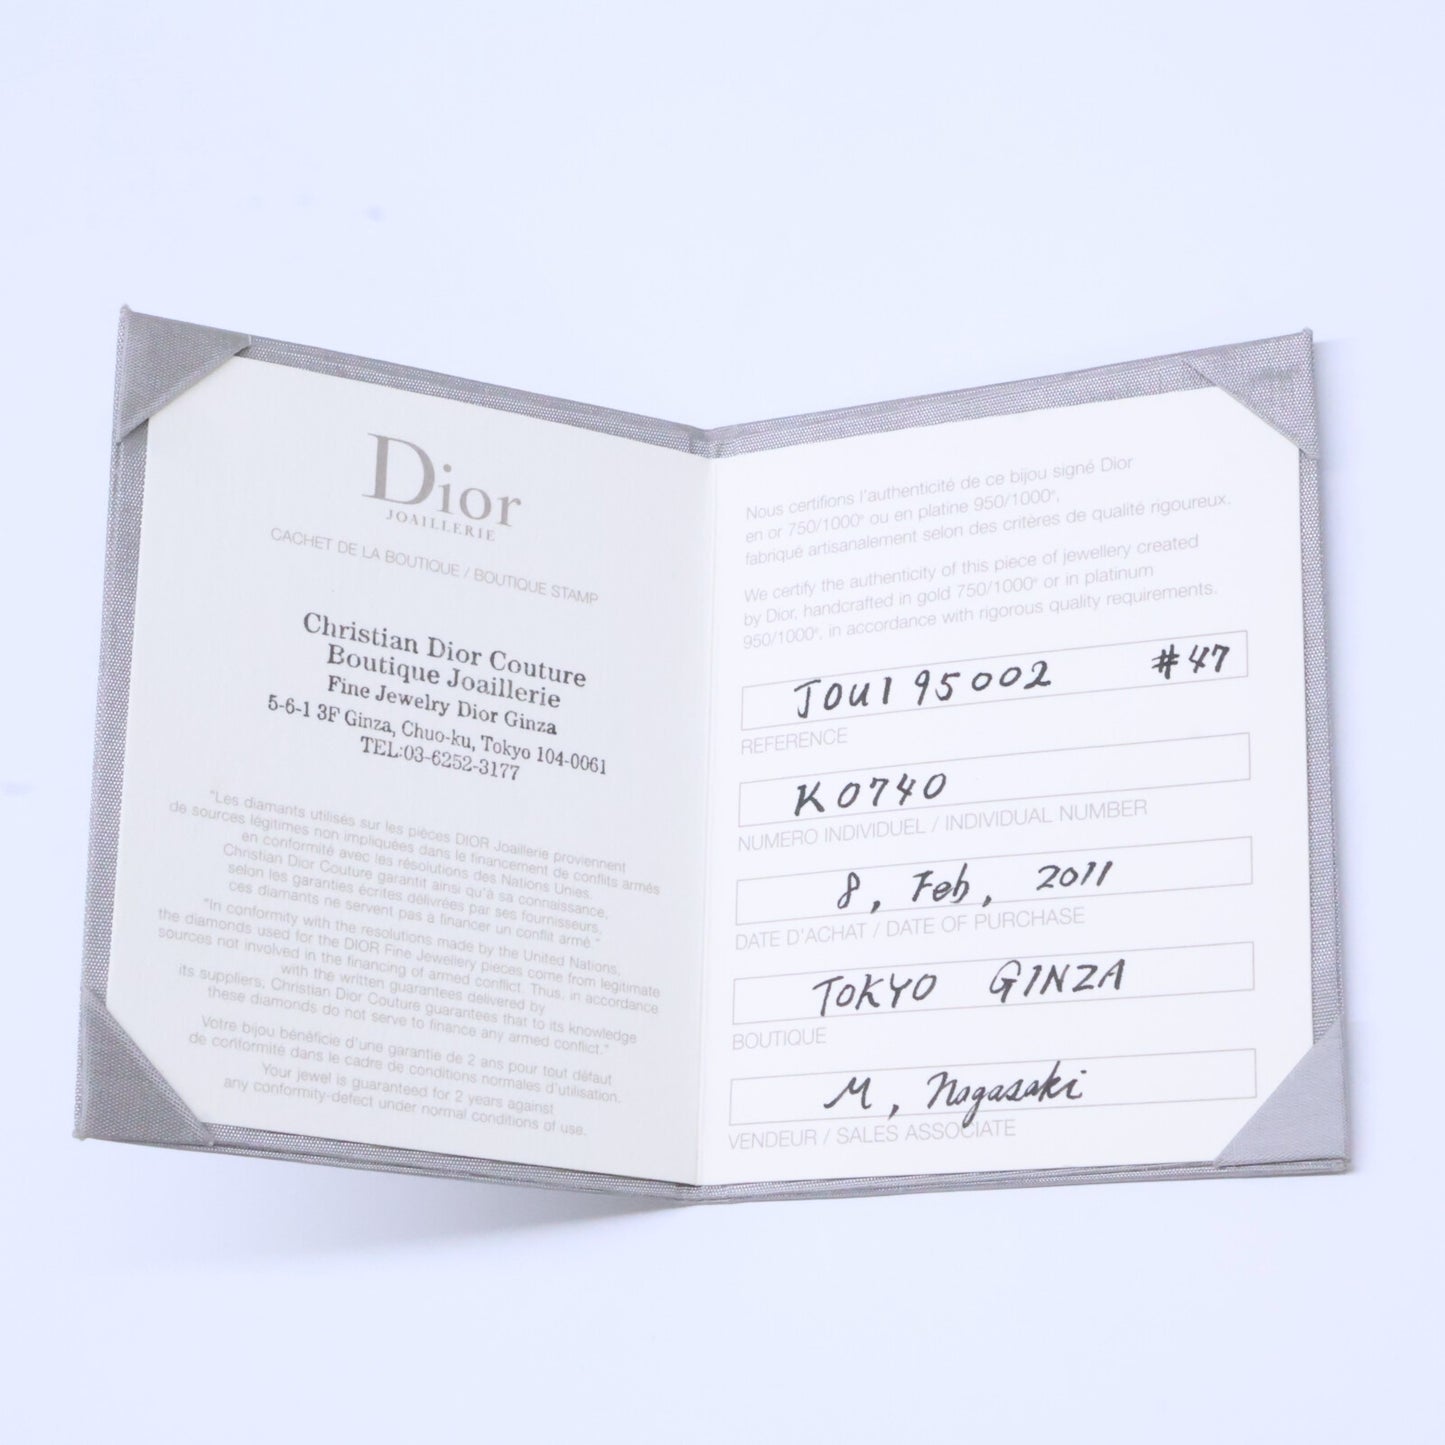 Dior
JOAILLERIE
CACHET DE LA BOUTIQUE / BOUTIQUE STAMP
Christian Dior Couture
Boutique Joaillerie
Fine Jewelry Dior Ginza
5-6-1 3F Ginza, Chuo-ku, Tokyo 104-0061
TEL:03-6252-3177
"Les diamants utilisés sur les pièces DIOR Joaillerie proviennent
de sources légitimes non impliquées dans le financement de conflits armés
en conformité avec les résolutions des Nations Unies.
Christian Dior Couture garantit ainsi qu'à sa connaissance,
selon les garanties écrites délivrées par ses fournisseurs,
ces diamants ne servent pas à financer un conflit armé."
"In conformity with the resolutions made by the United Nations,
the diamonds used for the DIOR Fine Jewellery pieces come from legitimate
sources not involved in the financing of armed conflict. Thus, in accordance
with the written guarantees delivered by
its suppliers, Christian Dior Couture guarantees that to its knowledge
these diamonds do not serve to finance any armed conflict."
Votre bijou bénéficie d'une garantie de 2 ans pour tout défaut
de conformité dans le cadre de conditions normales d'utilisation.
Your jewel is guaranteed for 2 years against
any conformity-defect under normal conditions of use.
Nous certifions l'authenticité de ce bijou signé Dior
en or 750/1000° ou en platine 950/1000°,
fabriqué artisanalement selon des critères de qualité rigoureux.
We certify the authenticity of this piece of jewellery created
by Dior, handcrafted in gold 750/1000° or in platinum
950/1000°, in accordance with rigorous quality requirements.
JOU195002 #47
REFERENCE
K0740
NUMERO INDIVIDUEL / INDIVIDUAL NUMBER
8, Feb, 2011
DATE D'ACHAT / DATE OF PURCHASE
TOKYO GINZA
BOUTIQUE
M, Nagasaki
VENDEUR / SALES ASSOCIATE